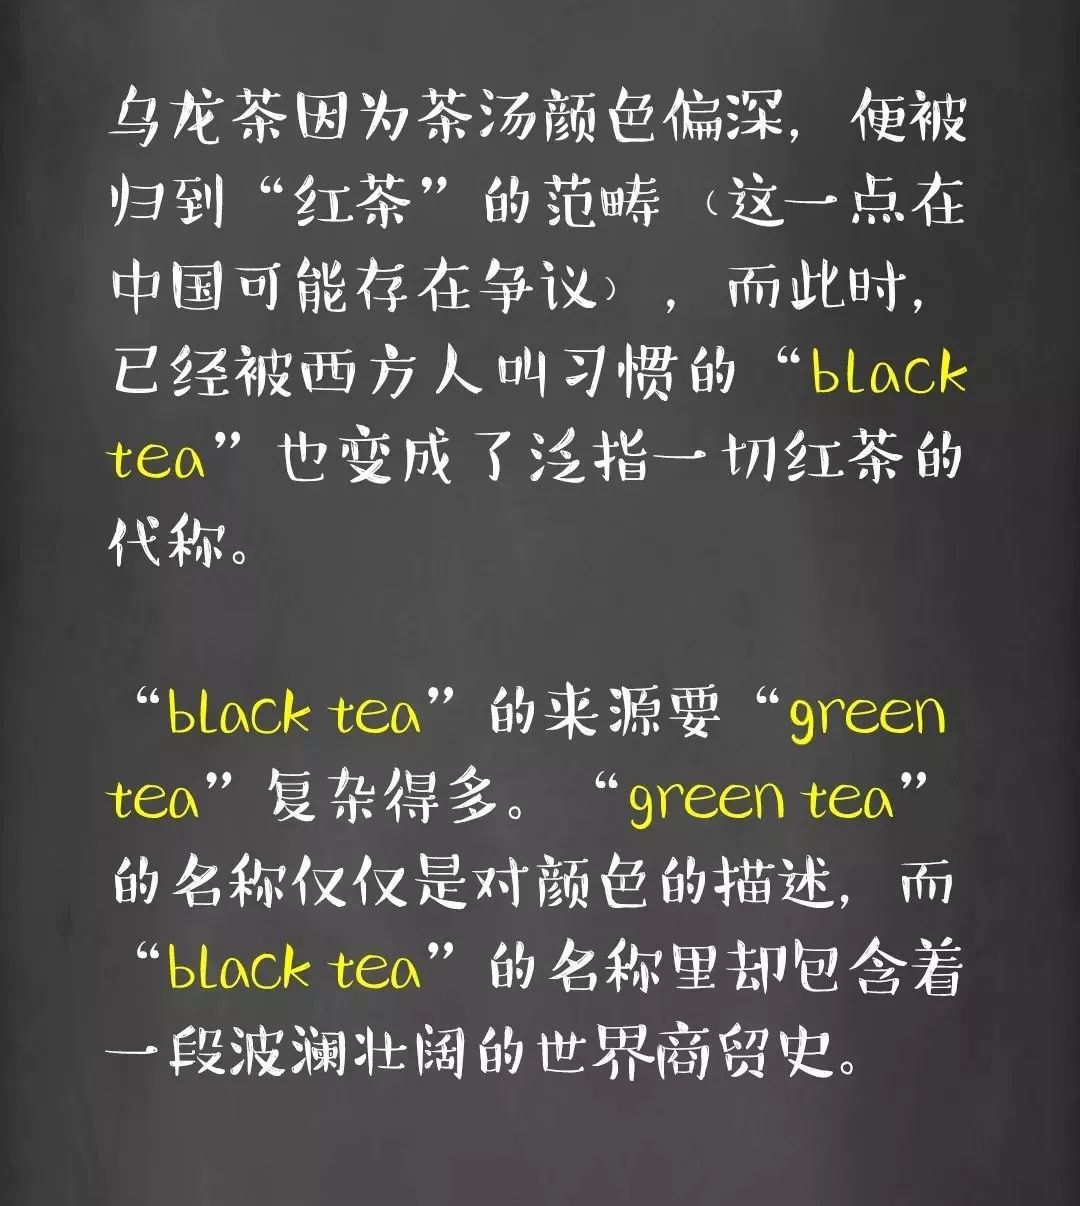 乌龙茶因为茶汤颜色偏深，便被
归到“红茶”的范畴（这一点在
中国可能存在争议），而此时，
已经被西方人叫习惯的“black
tea”也变成了泛指一切红茶的
代称。
“black tea”的来源要“green
tea”复杂得多。“green tea”
的名称仅仅是对颜色的描述，而
“black tea”的名称里却包含着
一段波澜壮阔的世界商贸史。